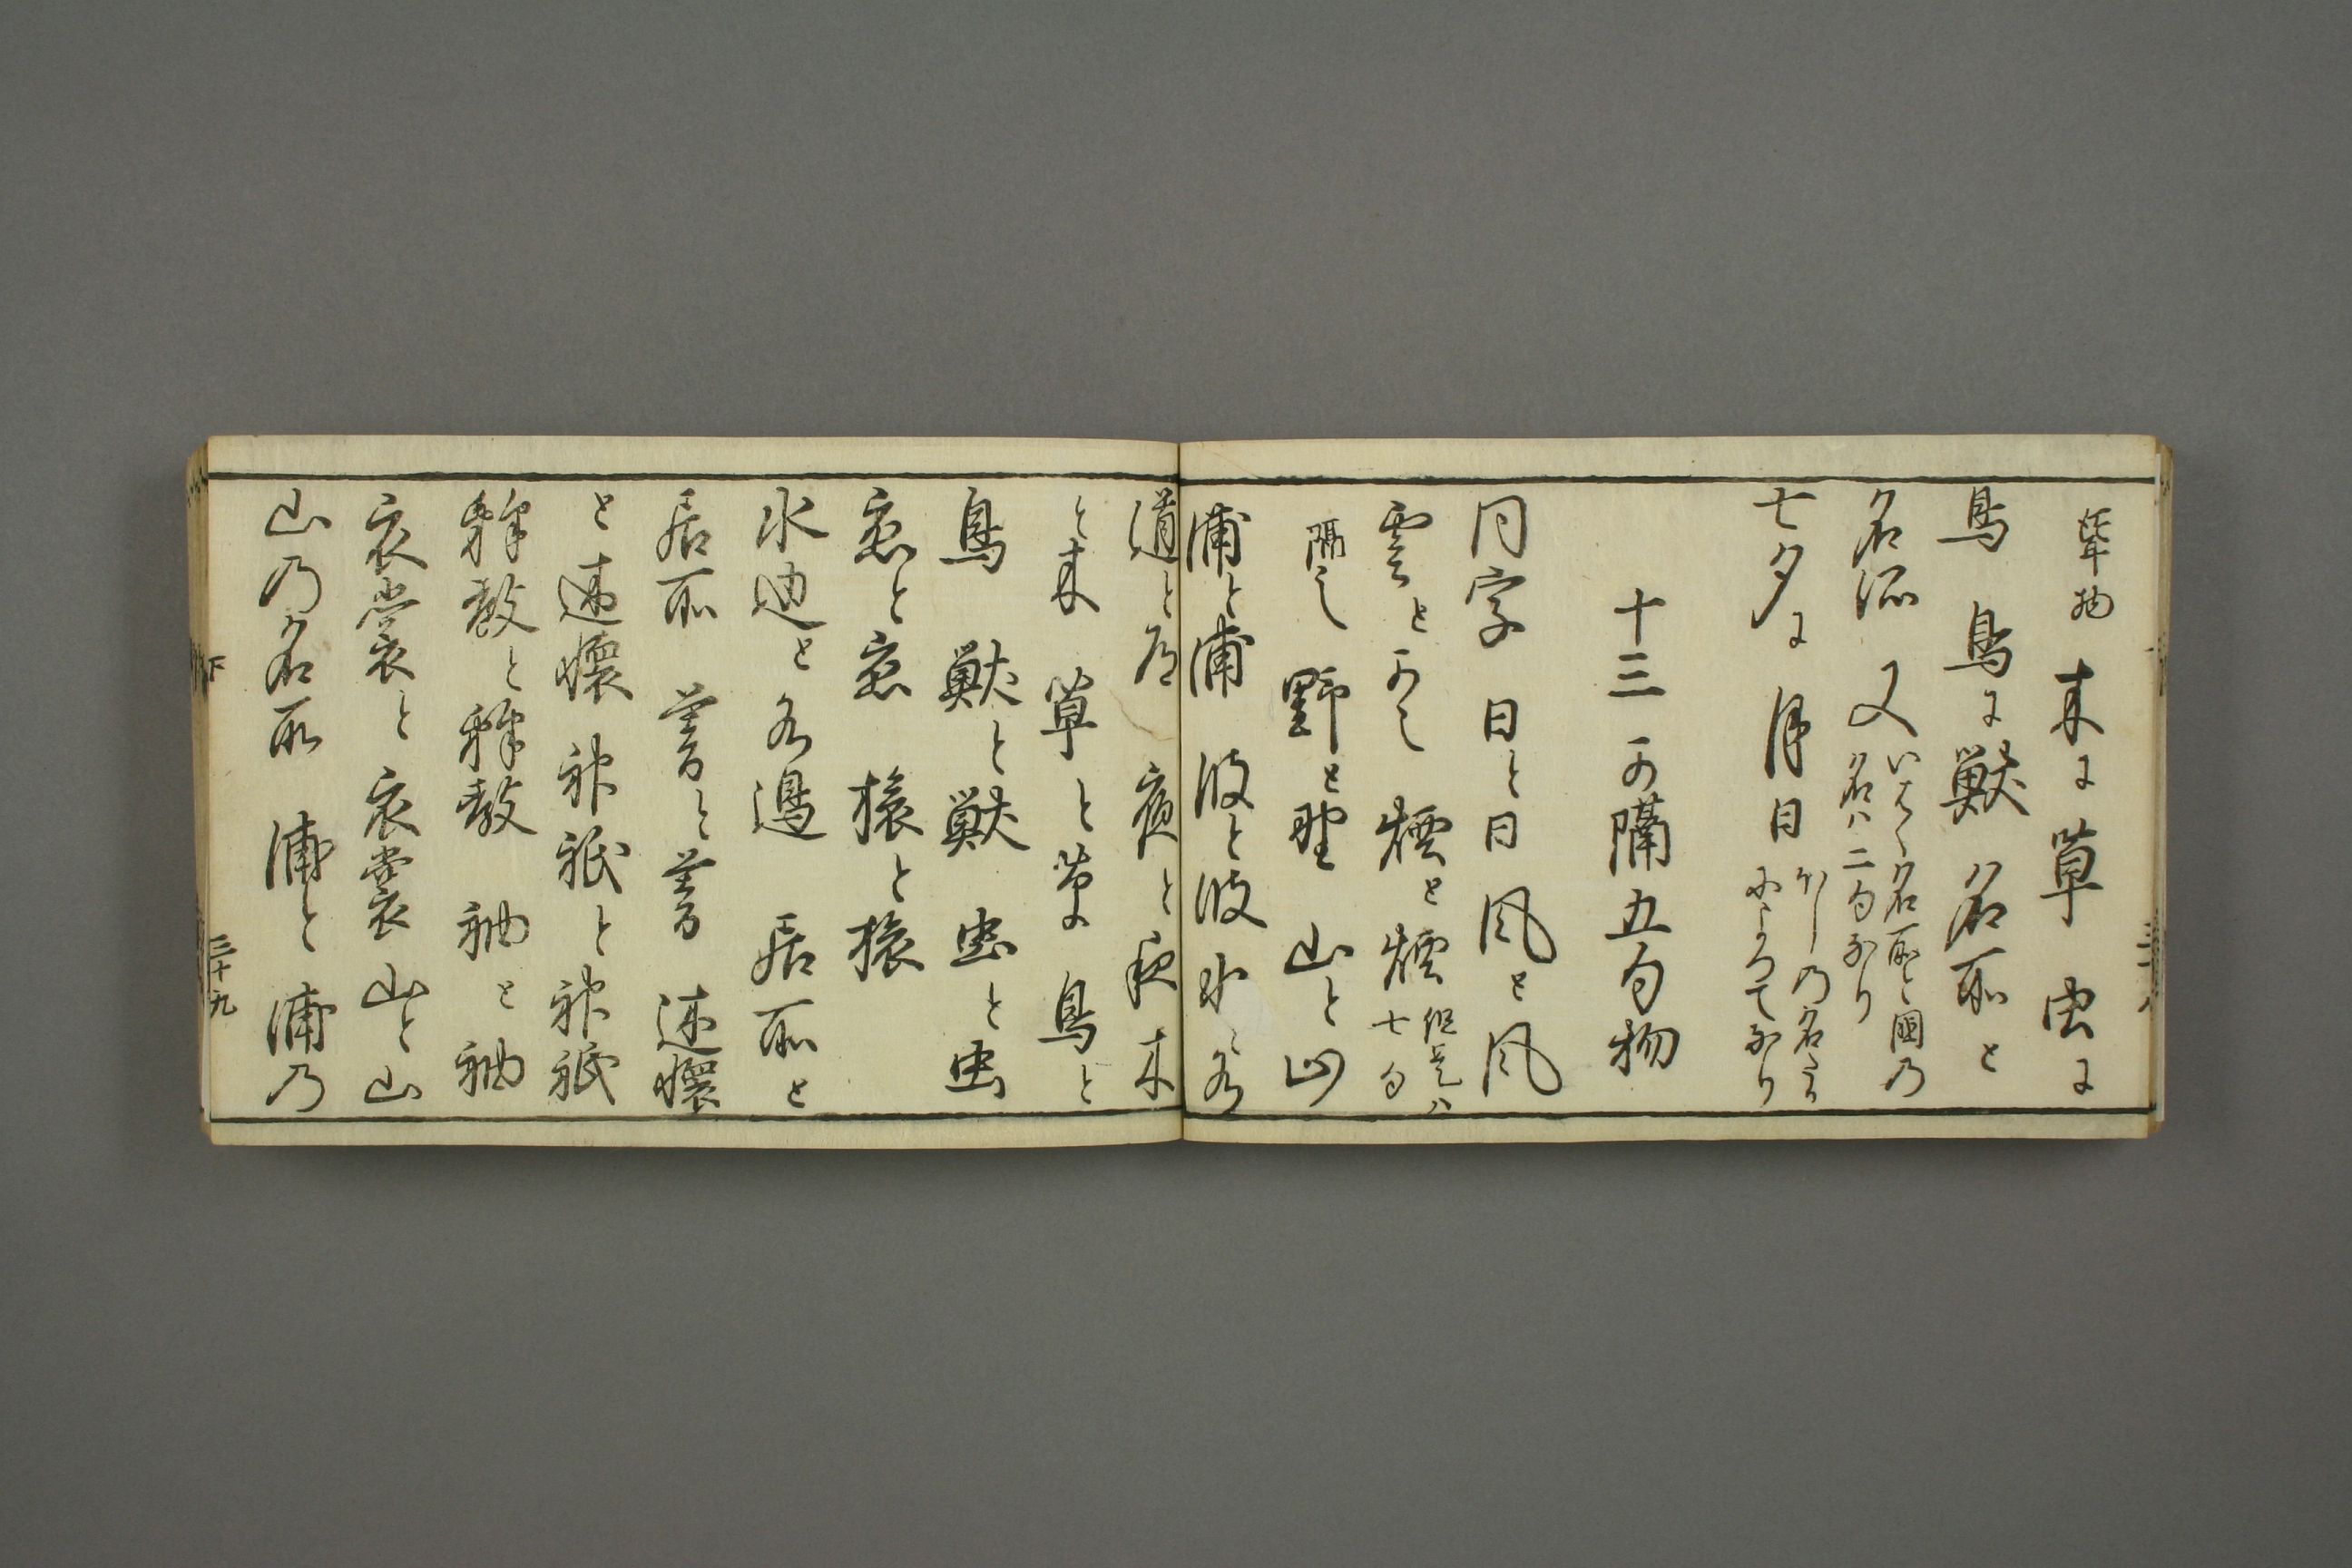 聳物 木に草 虫に
鳥 鳥に獣 名所と
名所 又 いはく名所と国の
名ハ二句なり
七夕に月日 ほしの名なる
によつてなり
十三 可隔五句物
同字 日と日 風と風
雲と 煙と煙 但是ハ
七句
隔之 野と野 山と山
浦と浦 波と波 水と水
道と道 夜と夜 木
と木 草と草 鳥と
鳥 獣と獣 虫と虫
恋と恋 旅と旅
水辺と水邊 居所と
居所 述懐
と述懐 神祇と神祇
釈教と釈教 袖と袖
衣裳と衣裳 山と山
山の名所 浦と浦の
下
三十九